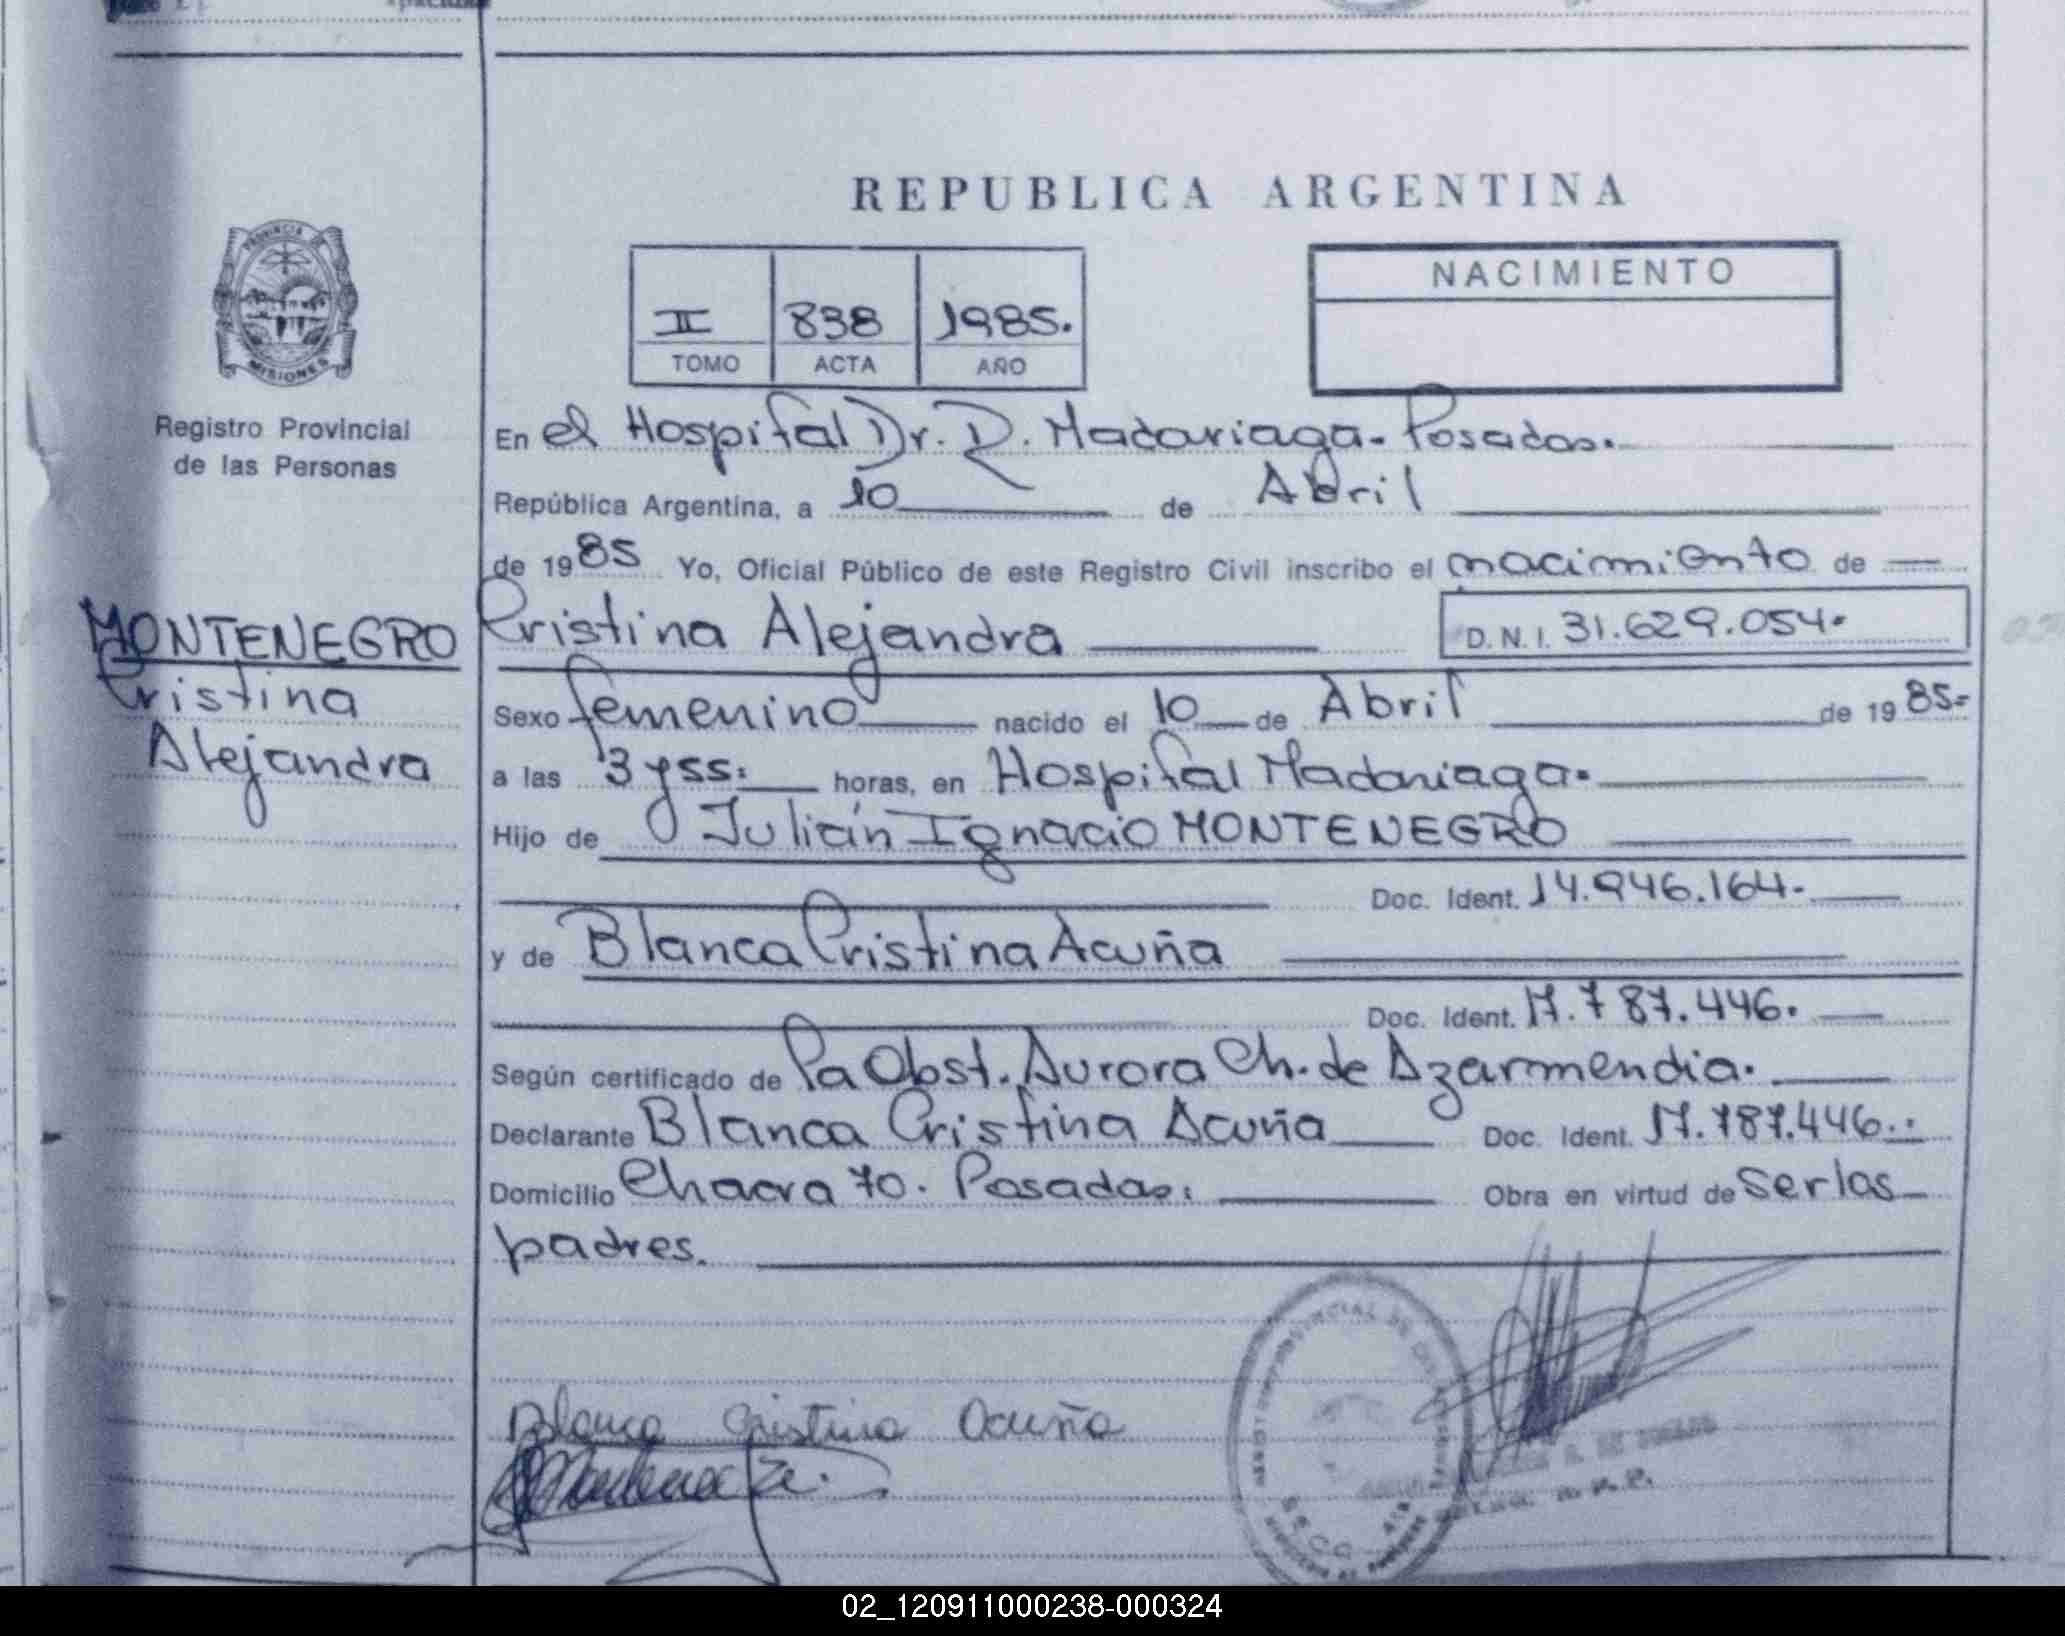 REPUBLICA ARGENTINA
PROVINCIA DE
MISIONES
Registro Provincial
de las Personas
II 838 1985.
TOMO ACTA AÑO
NACIMIENTO
En el Hospital Dr. R. Madariaga. Posadas.
República Argentina, a 10 de Abril
de 1985 Yo, Oficial Público de este Registro Civil inscribo el nacimiento de
MONTENEGRO
Cristina
Alejandra
Cristina Alejandra D.N.I. 31.629.054.
Sexo femenino nacido el 10 de Abril de 1985-
a las 3 y 55: horas, en Hospital Madariaga.
Hijo de Julián Ignacio MONTENEGRO
Doc. Ident. 14.946.164-
y de Blanca Cristina Acuña
Doc. Ident. 17.787.446.
Según certificado de La Obst. Aurora Ch. de Azarmendia.
Declarante Blanca Cristina Acuña Doc. Ident. 17.787.446.
Domicilio Chacra 70. Posadas. Obra en virtud de ser los
padres.
Blanca Cristina Acuña
02_120911000238-000324